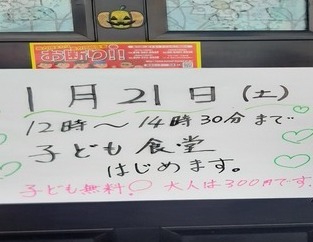 お断り!!
1月21日(土)
12時〜14時30分まで
子ども食堂
はじめます。
子ども無料♡ 大人は300円です。